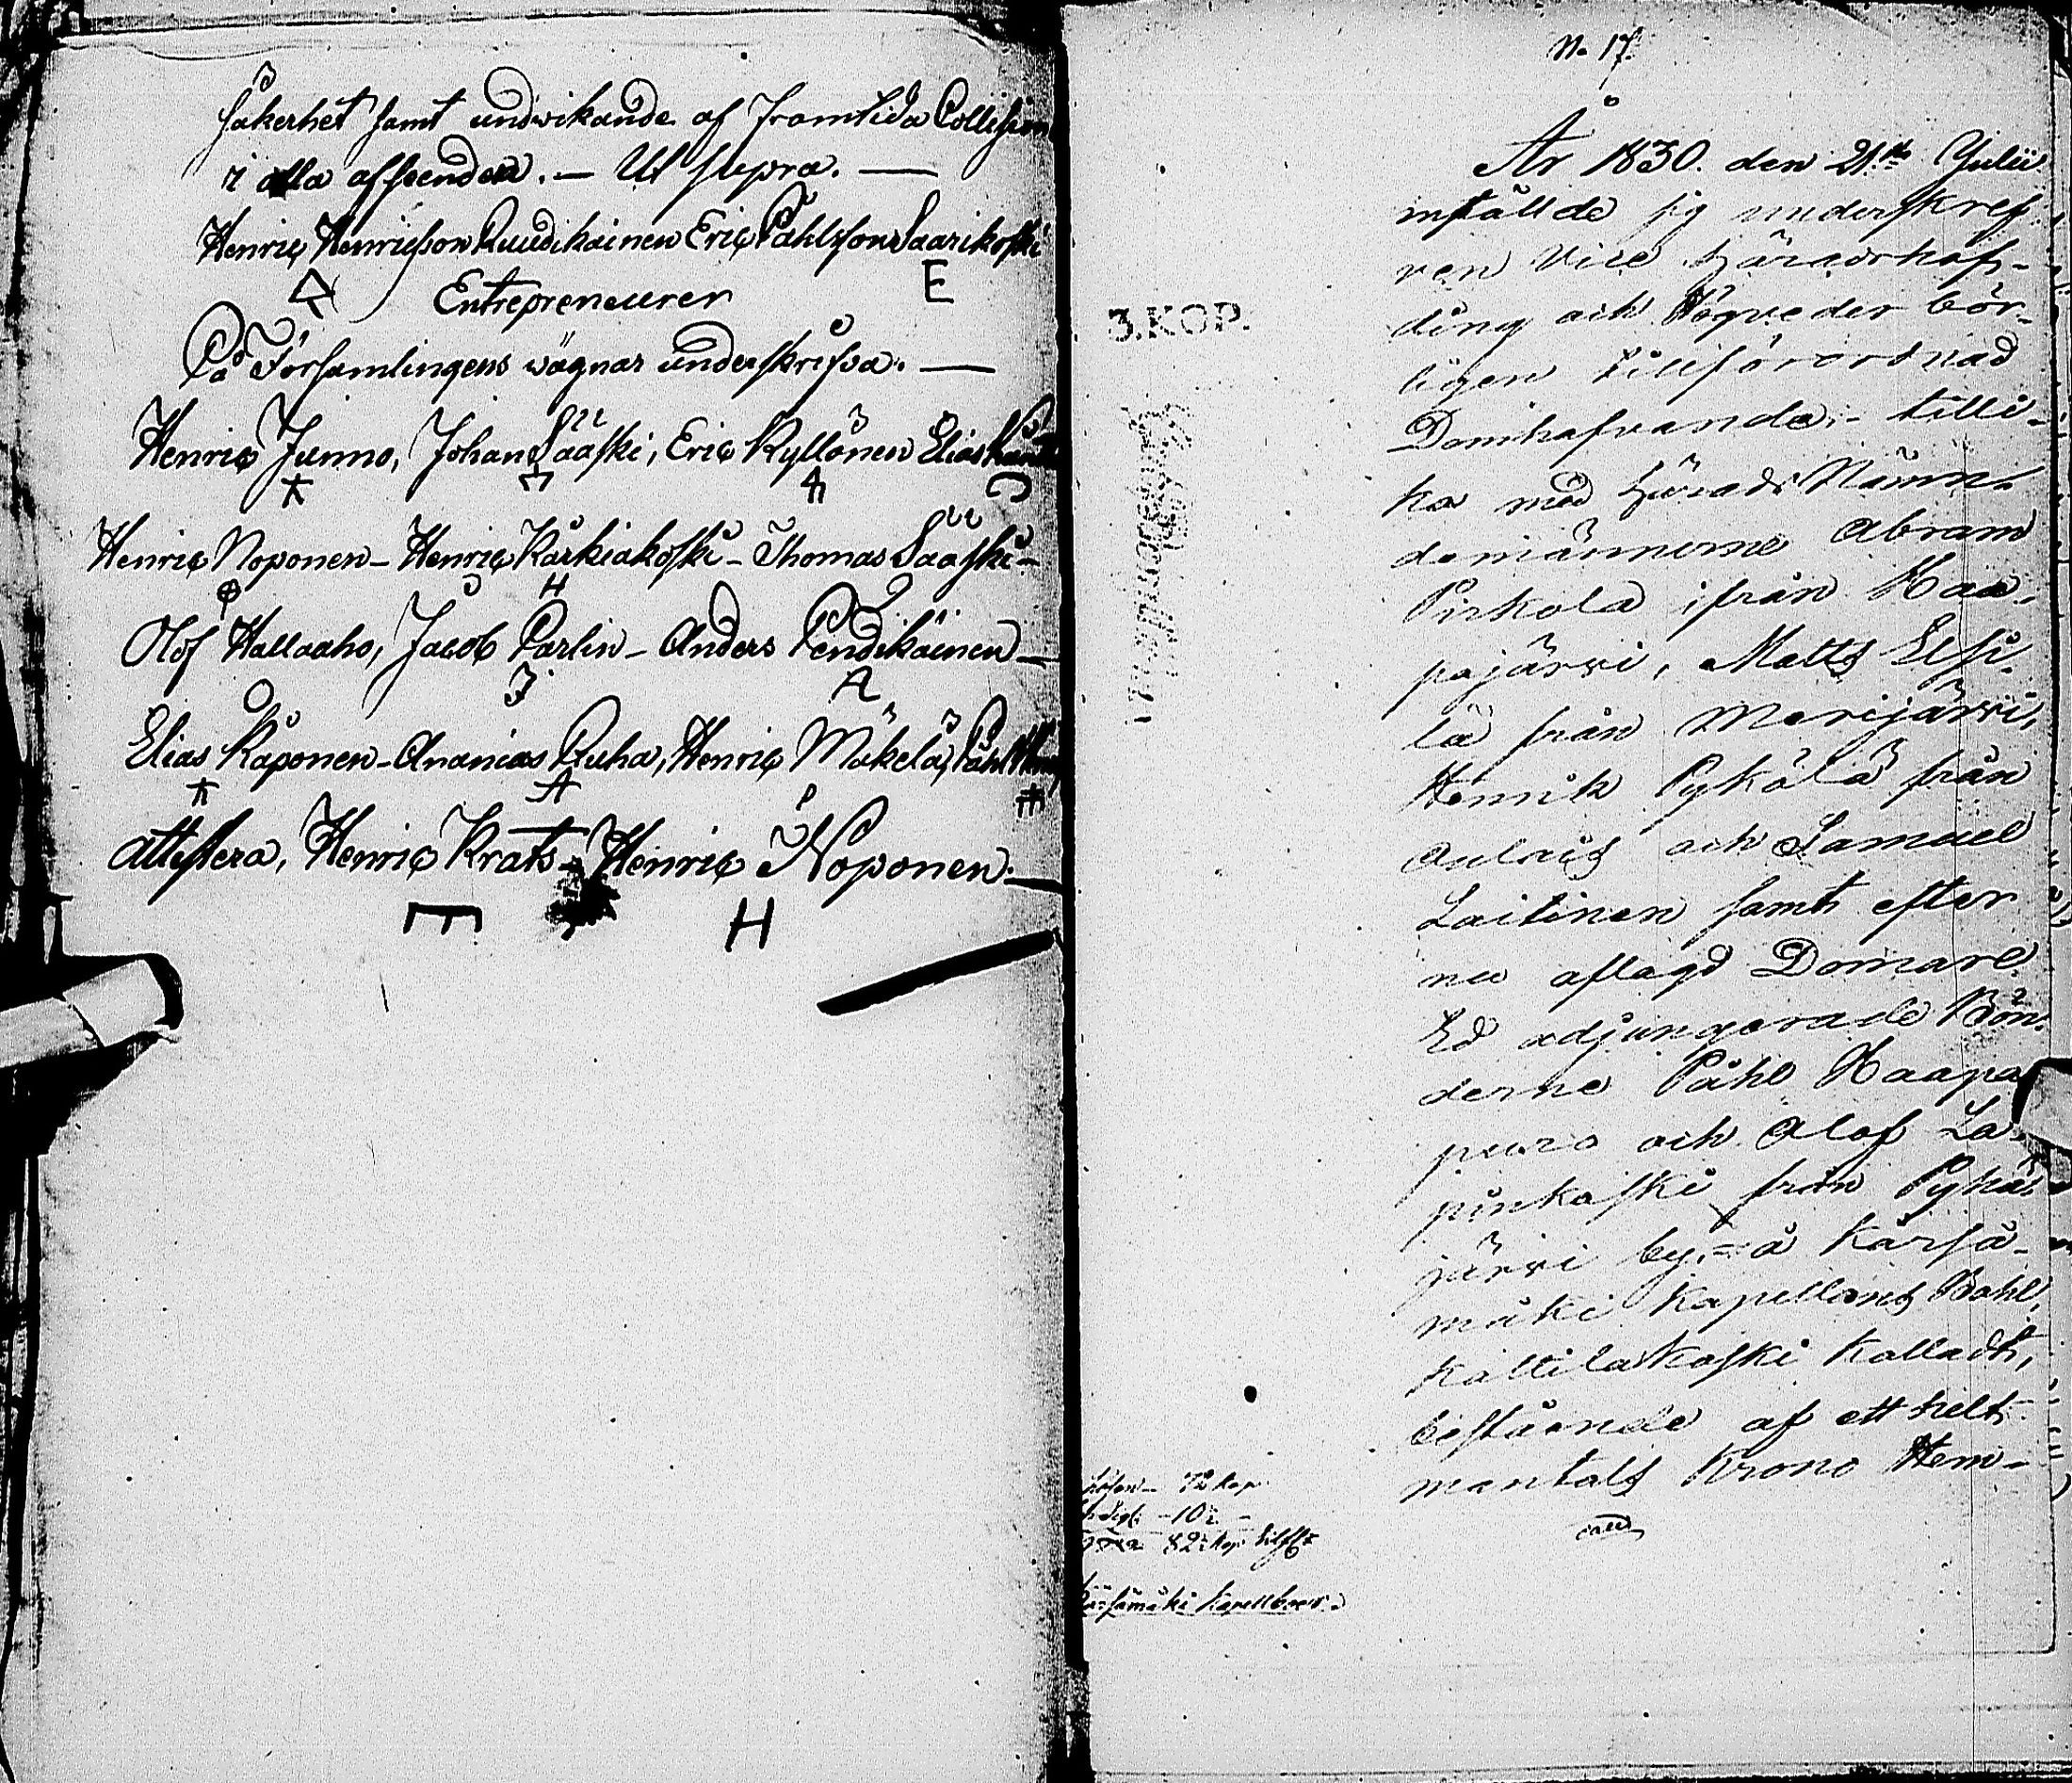 säkerhet samt undwikande af framtida Collision
i alla afseenden. — Ut supra. —
Henric Henricsson Ruudikainen Eric Påhlsson Saarikoski
E
Entrepreneurer
På Församlingens wägnar underskrifva. —
Henric Junno, Johan Sääski, Eric Kyllönen Elias
Henric Noponen – Henric Kärkiäkoski – Thomas Sääski –
H
Olof Hallaaho, Jacob Parlin – Anders Pendikäinen –
J A
Elias Kåponen – Ananias Ruha, Henric Mäkelä, Påhl
A
attestera, Henric Krats – Henric Noponen. –
H
N. 17.
År 1830. den 21.sta Julii
instälde jg underskref-
ven Vice Häradshöf-
ding och Högveder bör-
ligen tillförordnad
Domhafvande, tilli-
ka med Härads Nämn-
demännerne Abram
Pirkola ifrån Haa-
pajärvi, Matts Elsi-
lä från Merijärvi,
Henrik Pykälä från
Oulais och Samuel
Laitinen samt efter
nu aflagd Domare
Ed adjungerade Bön-
derne Påhl Haapa
puro och Olof La-
pinkoski från Pyhä-
järvi by, å Kärsä-
mäki Kapellants Bohl,
Kattilakoski kalladt,
bestående af ett helt
mantals Krono Hem-
man
3.KOP.
Lösen – 72 kop
– 10 2. –
82 kop Silf
Kärsämäki Kapellboer.